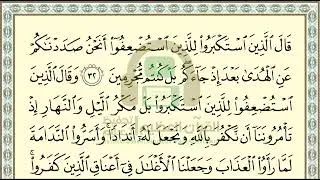 قَالَ ٱلَّذِينَ ٱسْتَكْبَرُوا۟ لِلَّذِينَ ٱسْتُضْعِفُوٓا۟ أَنَحْنُ صَدَدْنَٰكُمْ
عَنِ ٱلْهُدَىٰ بَعْدَ إِذْ جَآءَكُم بَلْ كُنتُم مُّجْرِمِينَ ٣٢ وَقَالَ ٱلَّذِينَ
ٱسْتُضْعِفُوا۟ لِلَّذِينَ ٱسْتَكْبَرُوا۟ بَلْ مَكْرُ ٱلَّيْلِ وَٱلنَّهَارِ إِذْ
تَأْمُرُونَنَآ أَن نَّكْفُرَ بِٱللَّهِ وَنَجْعَلَ لَهُۥٓ أَندَادًا وَأَسَرُّوا۟ ٱلنَّدَامَةَ
لَمَّا رَأَوُا۟ ٱلْعَذَابَ وَجَعَلْنَا ٱلْأَغْلَٰلَ فِىٓ أَعْنَاقِ ٱلَّذِينَ كَفَرُوا۟